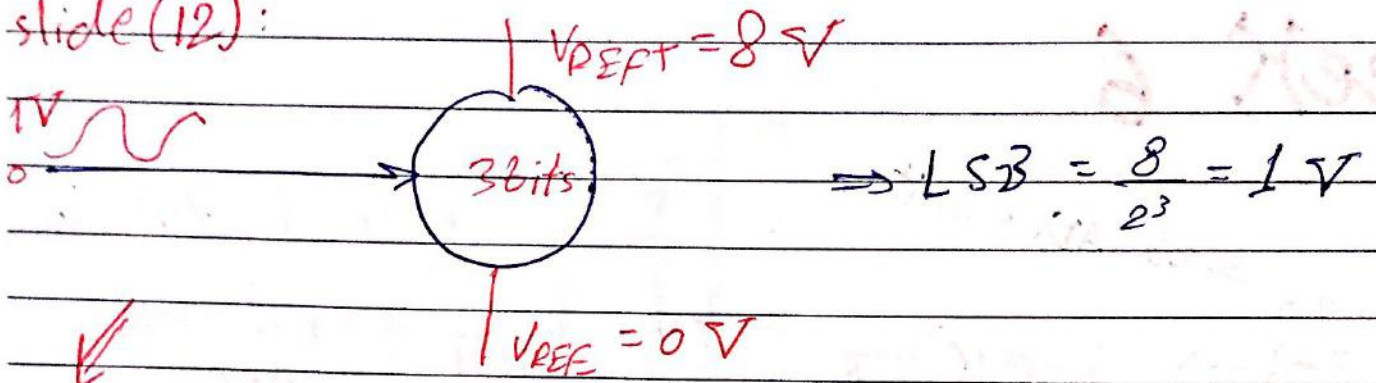 slide (12):
VREF+ = 8 V
1V
0
3bits
⇒ LSB = 8/2³ = 1 V
VREF- = 0 V